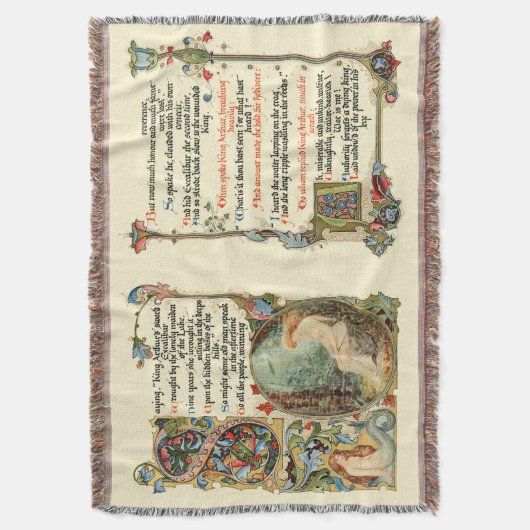 Saying, "King Arthur's sword
Excalibur
Wrought by the lonely maiden
of the Lake.
Nine years she wrought it,
sitting in the deeps
Upon the hidden bases of the
hills."
So might some old man speak
in the aftertime
To all the people, winning
reverence.
But now much honour and much fame
were lost."
So spake he, clouded with his own
conceit,
And hid Excalibur the second time,
And so strode back slow to the wounded
King.
Then spoke King Arthur, breathing
heavily:
"What is it thou hast seen? or what hast
heard?"
And answer made the bold Sir Bedivere:
"I heard the water lapping on the crag,
And the long ripple washing in the reeds."
To whom replied King Arthur, much in
wrath:
"Ah, miserable and unkind, untrue,
Unknightly, traitor-hearted!
Woe is me!
Authority forgets a dying king,
Laid widow'd of the power in his
eye